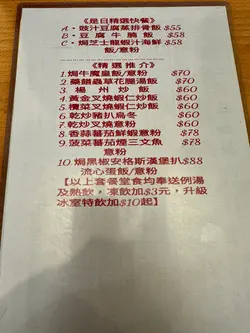 《是日精選快餐》
A·豉汁豆腐蒸排骨飯$55
B·豆腐牛腩飯 $58
C·焗芝士龍蝦汁海鮮 $58
飯/意粉
《精選推介》
1.焗牛魔皇飯/意粉 $70
2.藥膳蟲草花腿湯飯 $70
3.楊州炒飯 $60
4.黃金叉燒蝦仁炒飯 $60
5.欖菜叉燒蝦仁炒飯 $60
6.乾炒豬扒烏冬 $60
7.乾炒叉燒意粉 $60
8.香蒜蕃茄鮮蝦意粉 $78
9.菠菜蕃茄煙三文魚 $78
意粉
10.焗黑椒安格斯漢堡扒$88
流心蛋飯/意粉
【以上套餐堂食均奉送例湯
及熱飲，凍飲加$3元，升級
冰室特飲加$10起】